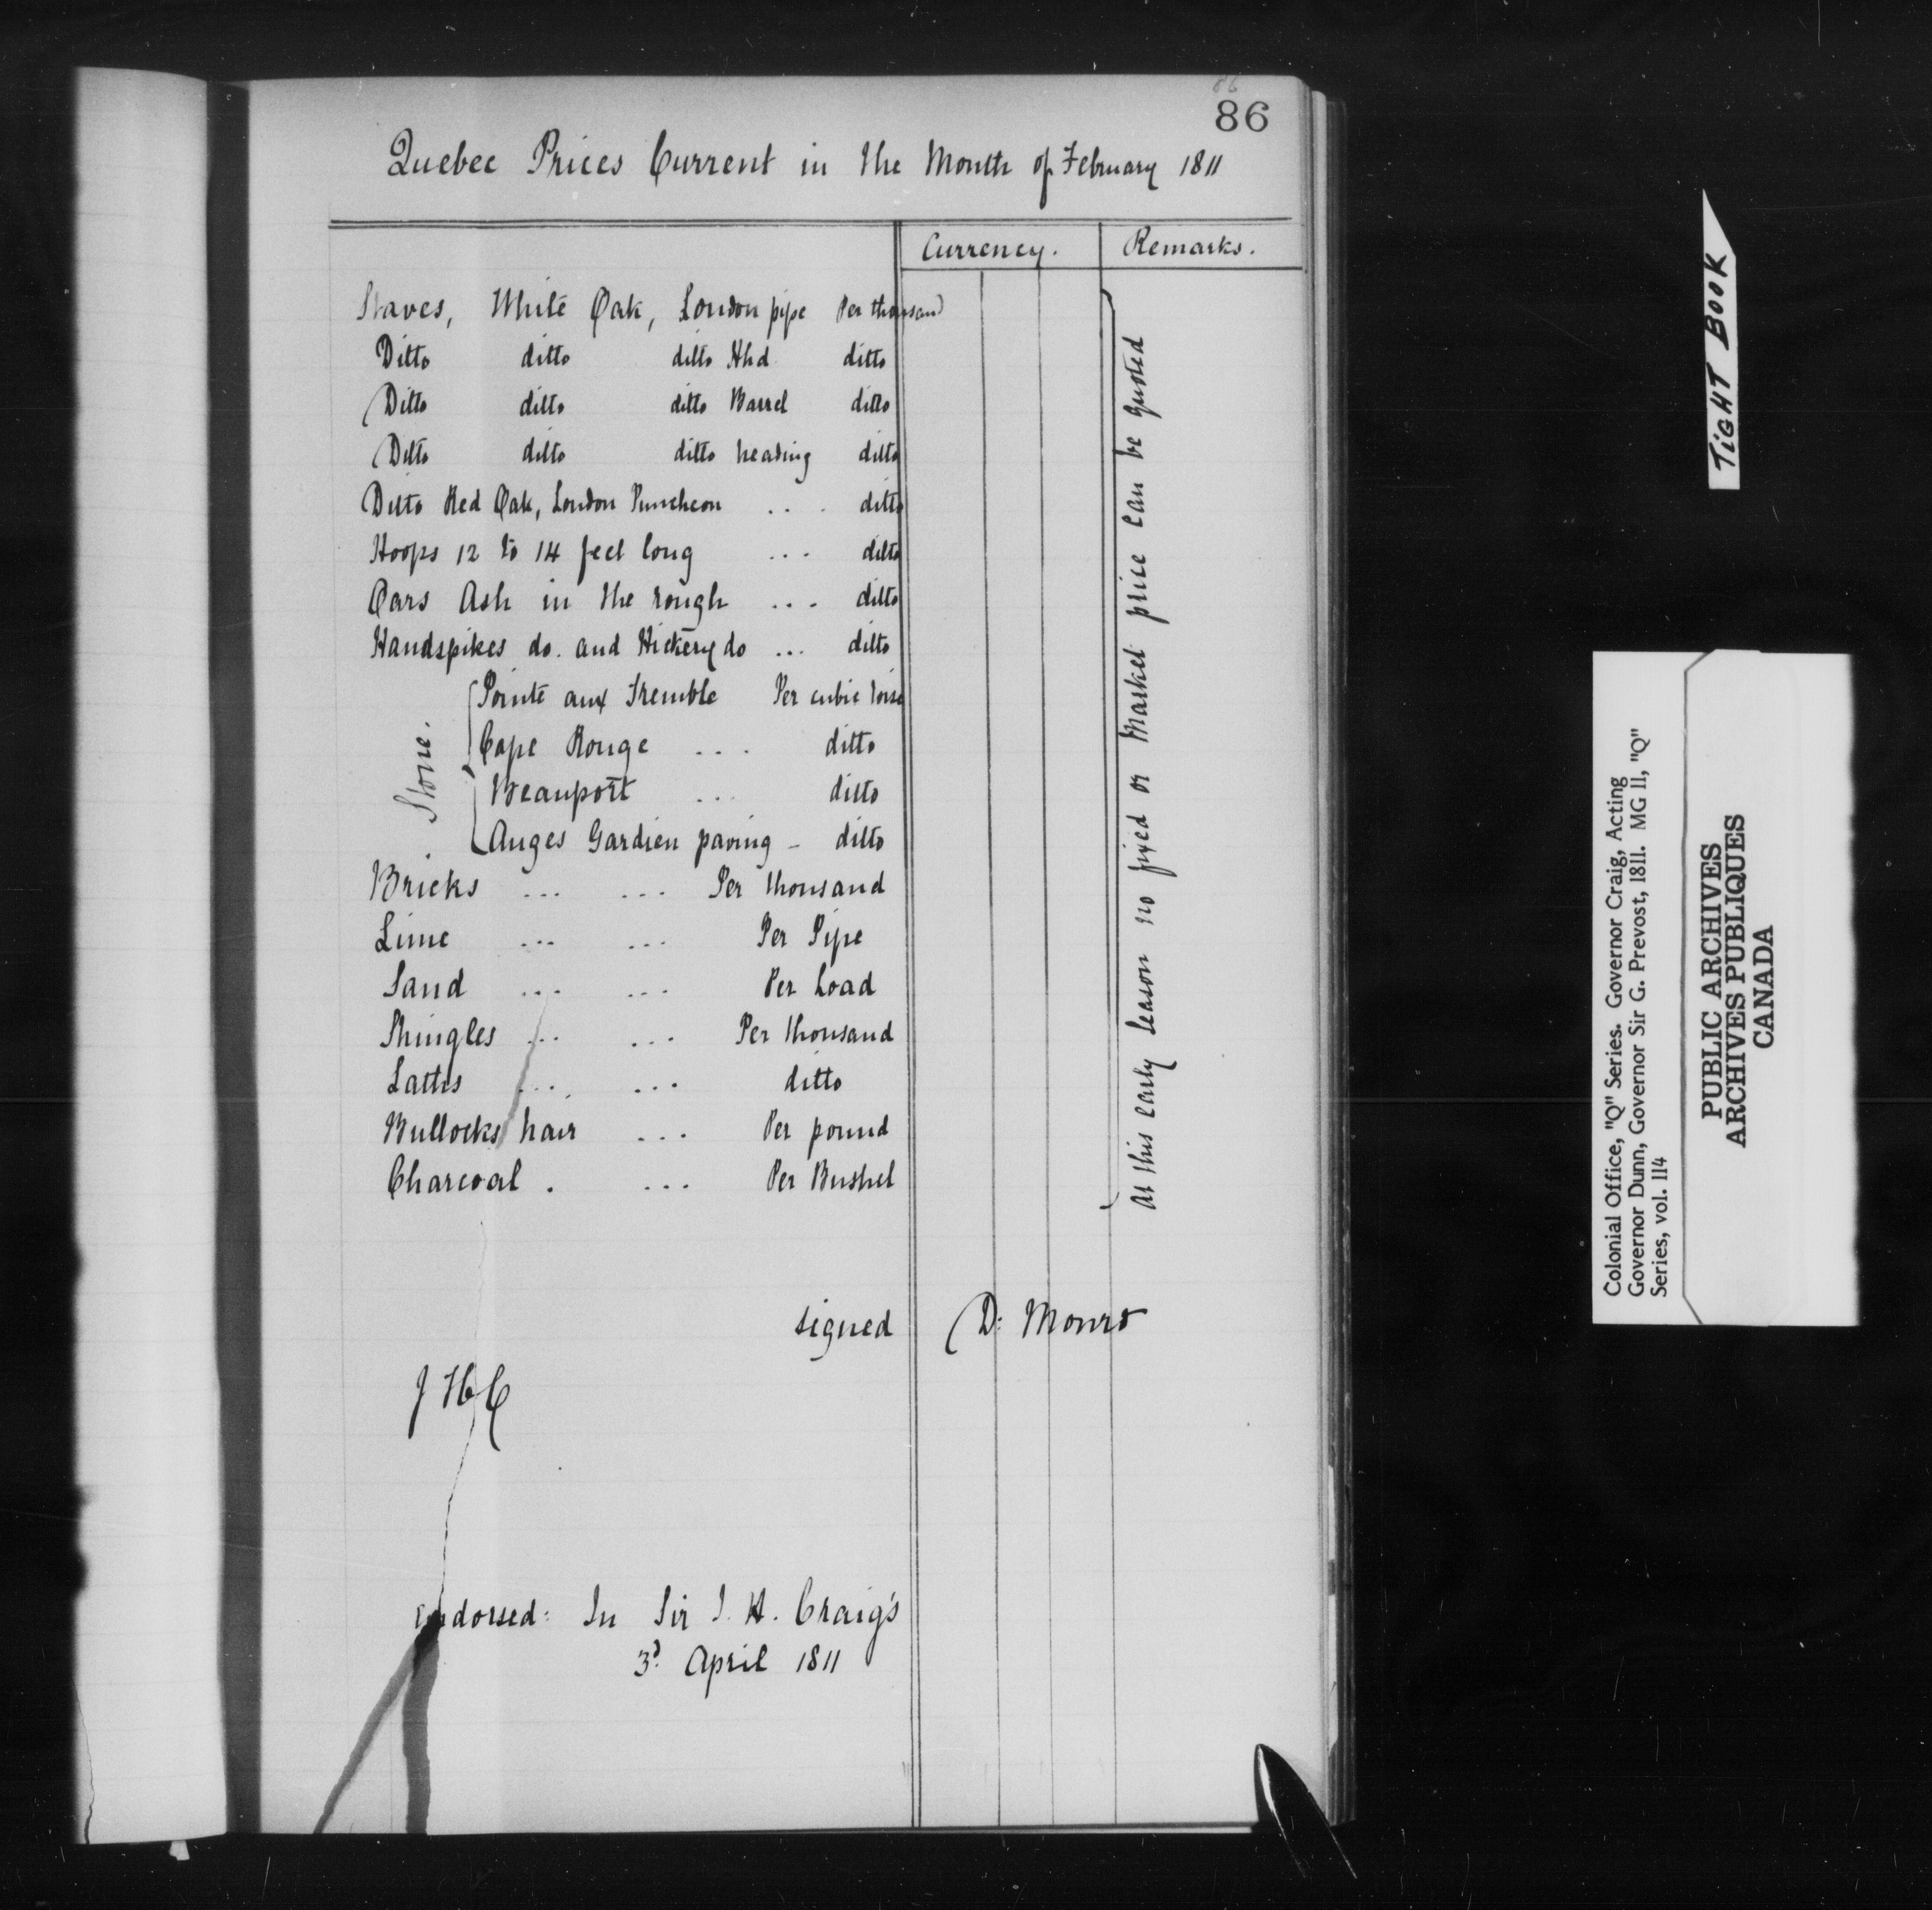 86
86
Quebec Prices Current in the Month of February 1811
Currency. Remarks.
Staves, White Oak, London pipe Per thousand
Ditto ditto ditto Hhd ditto
Ditto ditto ditto Barrel ditto
Ditto ditto ditto heading ditto
Ditto Red Oak, London Puncheon ... ditto
Hoops 12 to 14 feet long ... ditto
Oars Ash in the rough ... ditto
Handspikes do. and Hickery do ... ditto
Stone.
Pointe aux Tremble Per cubic toise
Cape Rouge ... ditto
Beauport ... ditto
Anges Gardien paving - ditto
Bricks ... ... Per thousand
Lime ... ... Per Pipe
Sand ... ... Per Load
Shingles ... ... Per thousand
Laths ... ... ditto
Bullocks hair ... Per pound
Charcoal . ... Per Bushel
At this early Season no fixed or Market price can be quoted
signed D: Monro
J H C
Endorsed: In Sir J. H. Craig's
3d April 1811
TIGHT BOOK
Colonial Office, "Q" Series. Governor Craig, Acting
Governor Dunn, Governor Sir G. Prevost, 1811. MG 11, "Q"
Series, vol. 114
PUBLIC ARCHIVES
ARCHIVES PUBLIQUES
CANADA